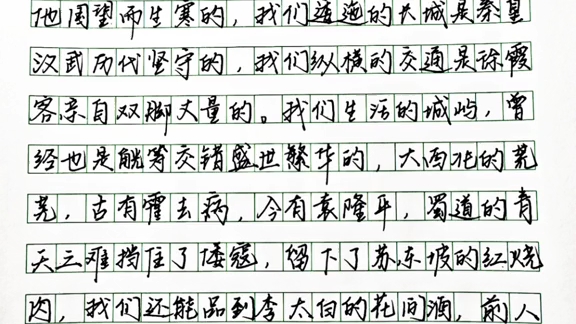 他围望而生寒的，我们造逃的长城是秦皇
汉武历代坚守的，我们纵横的交通是徐霞
客亲自双脚丈量的。我们生活的城屿，曾
经也是觥筹交错盛世繁华的，大西北的荒
芜，古有霍去病，今有袁隆平，蜀道的青
天三难挡住了倭寇，留下了苏东坡的红烧
肉，我们还能品到李太白的花间酒，前人